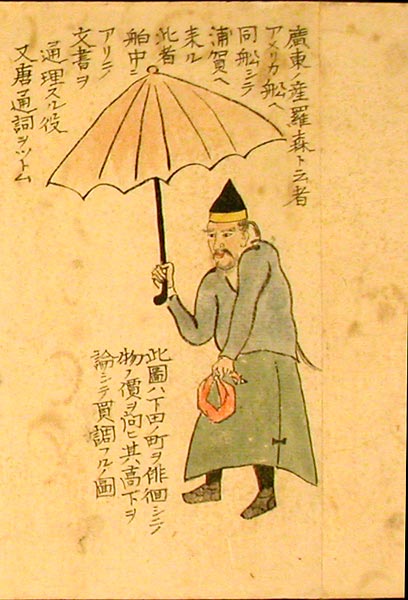 廣東ノ産羅森ト云者
アメリカ船ヘ
同船シテ
浦賀ヘ
来ル
此者
舶中ニ
アリテ
文書ヲ
通理スル役
又唐通詞ヲツトム
此圖ハ下田ノ町ヲ俳徊シテ
物ノ價ヲ問ヒ其高下ヲ
論シテ買調フルノ圖